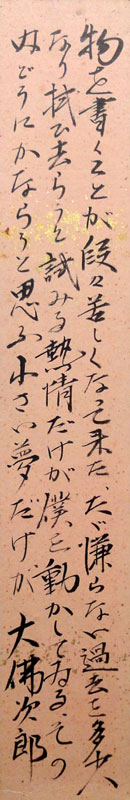 物を書くことが段々苦しくなつて来た、たゞ慊らない過去を多少
なり拭ひ去らうと試みる熱情だけが僕を動かしてゐる、その
内どうにかならうと思ふ小さい夢だけが 大佛次郎